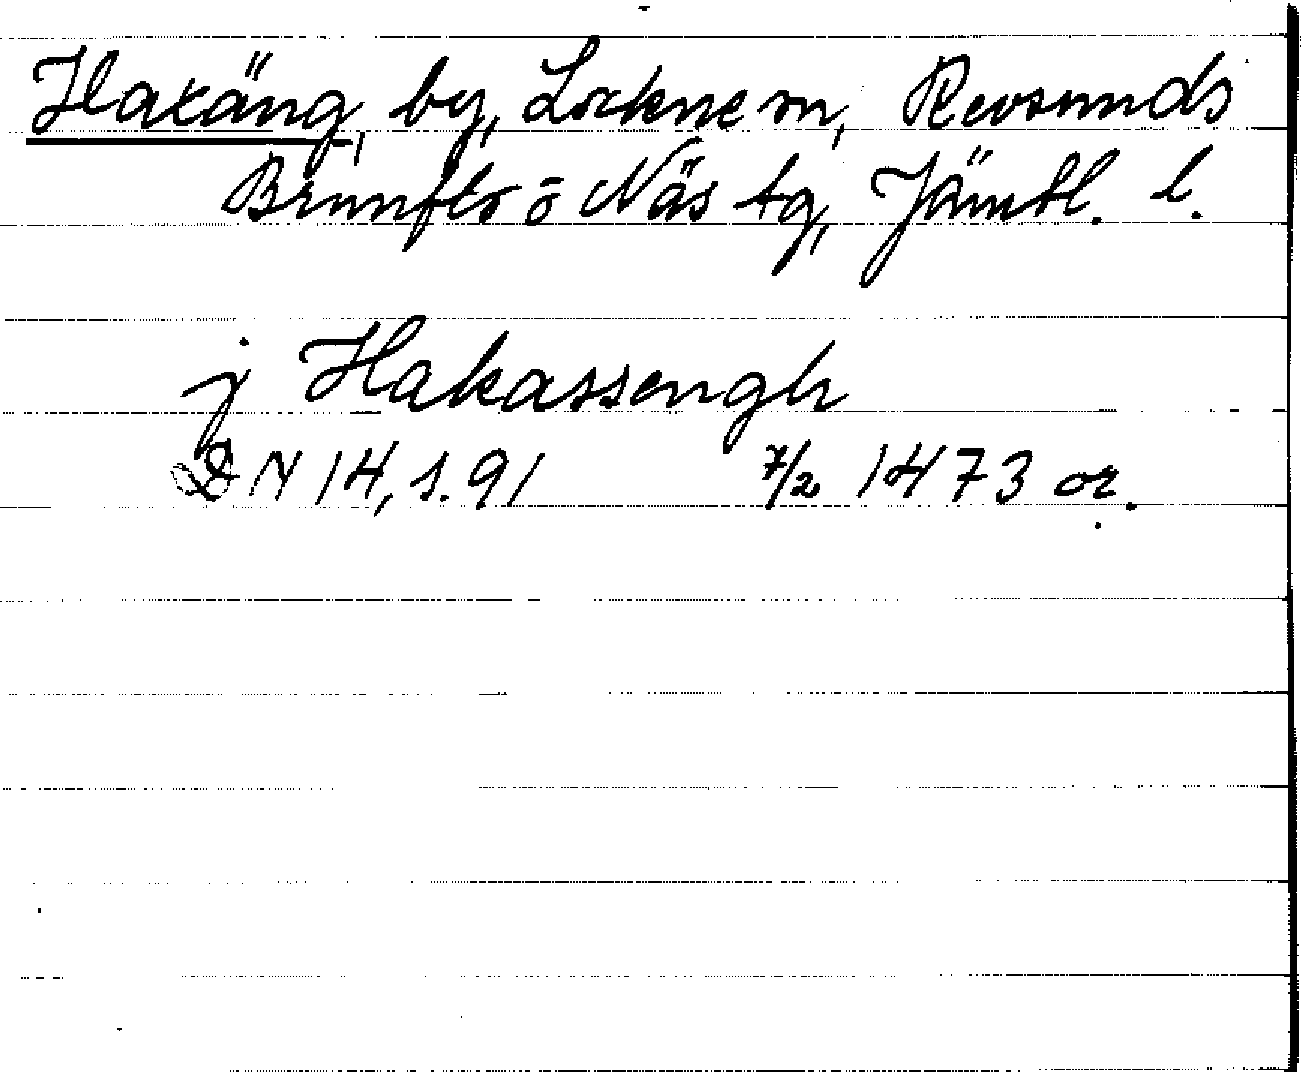 Haxäng, by, Lockne sn, Revsunds
Brunflo o Näs tg, Jämtl. l.
j Hakassengh
DN 14, s. 91 7/2 1473 or.